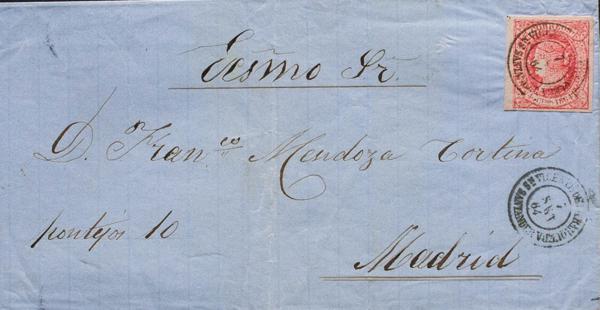 Ecsmo Sr.
D. Fran.co Mendoza Cortina
pontejos 10
Madrid
7
64